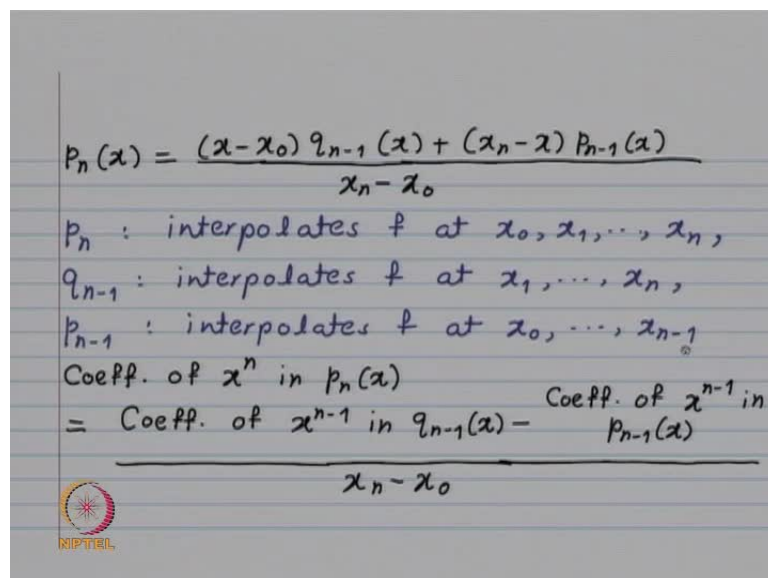 pₙ(x) = (x-x₀) qₙ₋₁(x) + (xₙ-x) pₙ₋₁(x)
xₙ-x₀
pₙ : interpolates f at x₀, x₁, ..., xₙ,
qₙ₋₁ : interpolates f at x₁, ..., xₙ,
pₙ₋₁ : interpolates f at x₀, ..., xₙ₋₁
Coeff. of xⁿ in pₙ(x)
= Coeff. of xⁿ⁻¹ in qₙ₋₁(x) - Coeff. of xⁿ⁻¹ in pₙ₋₁(x)
xₙ-x₀
NPTEL